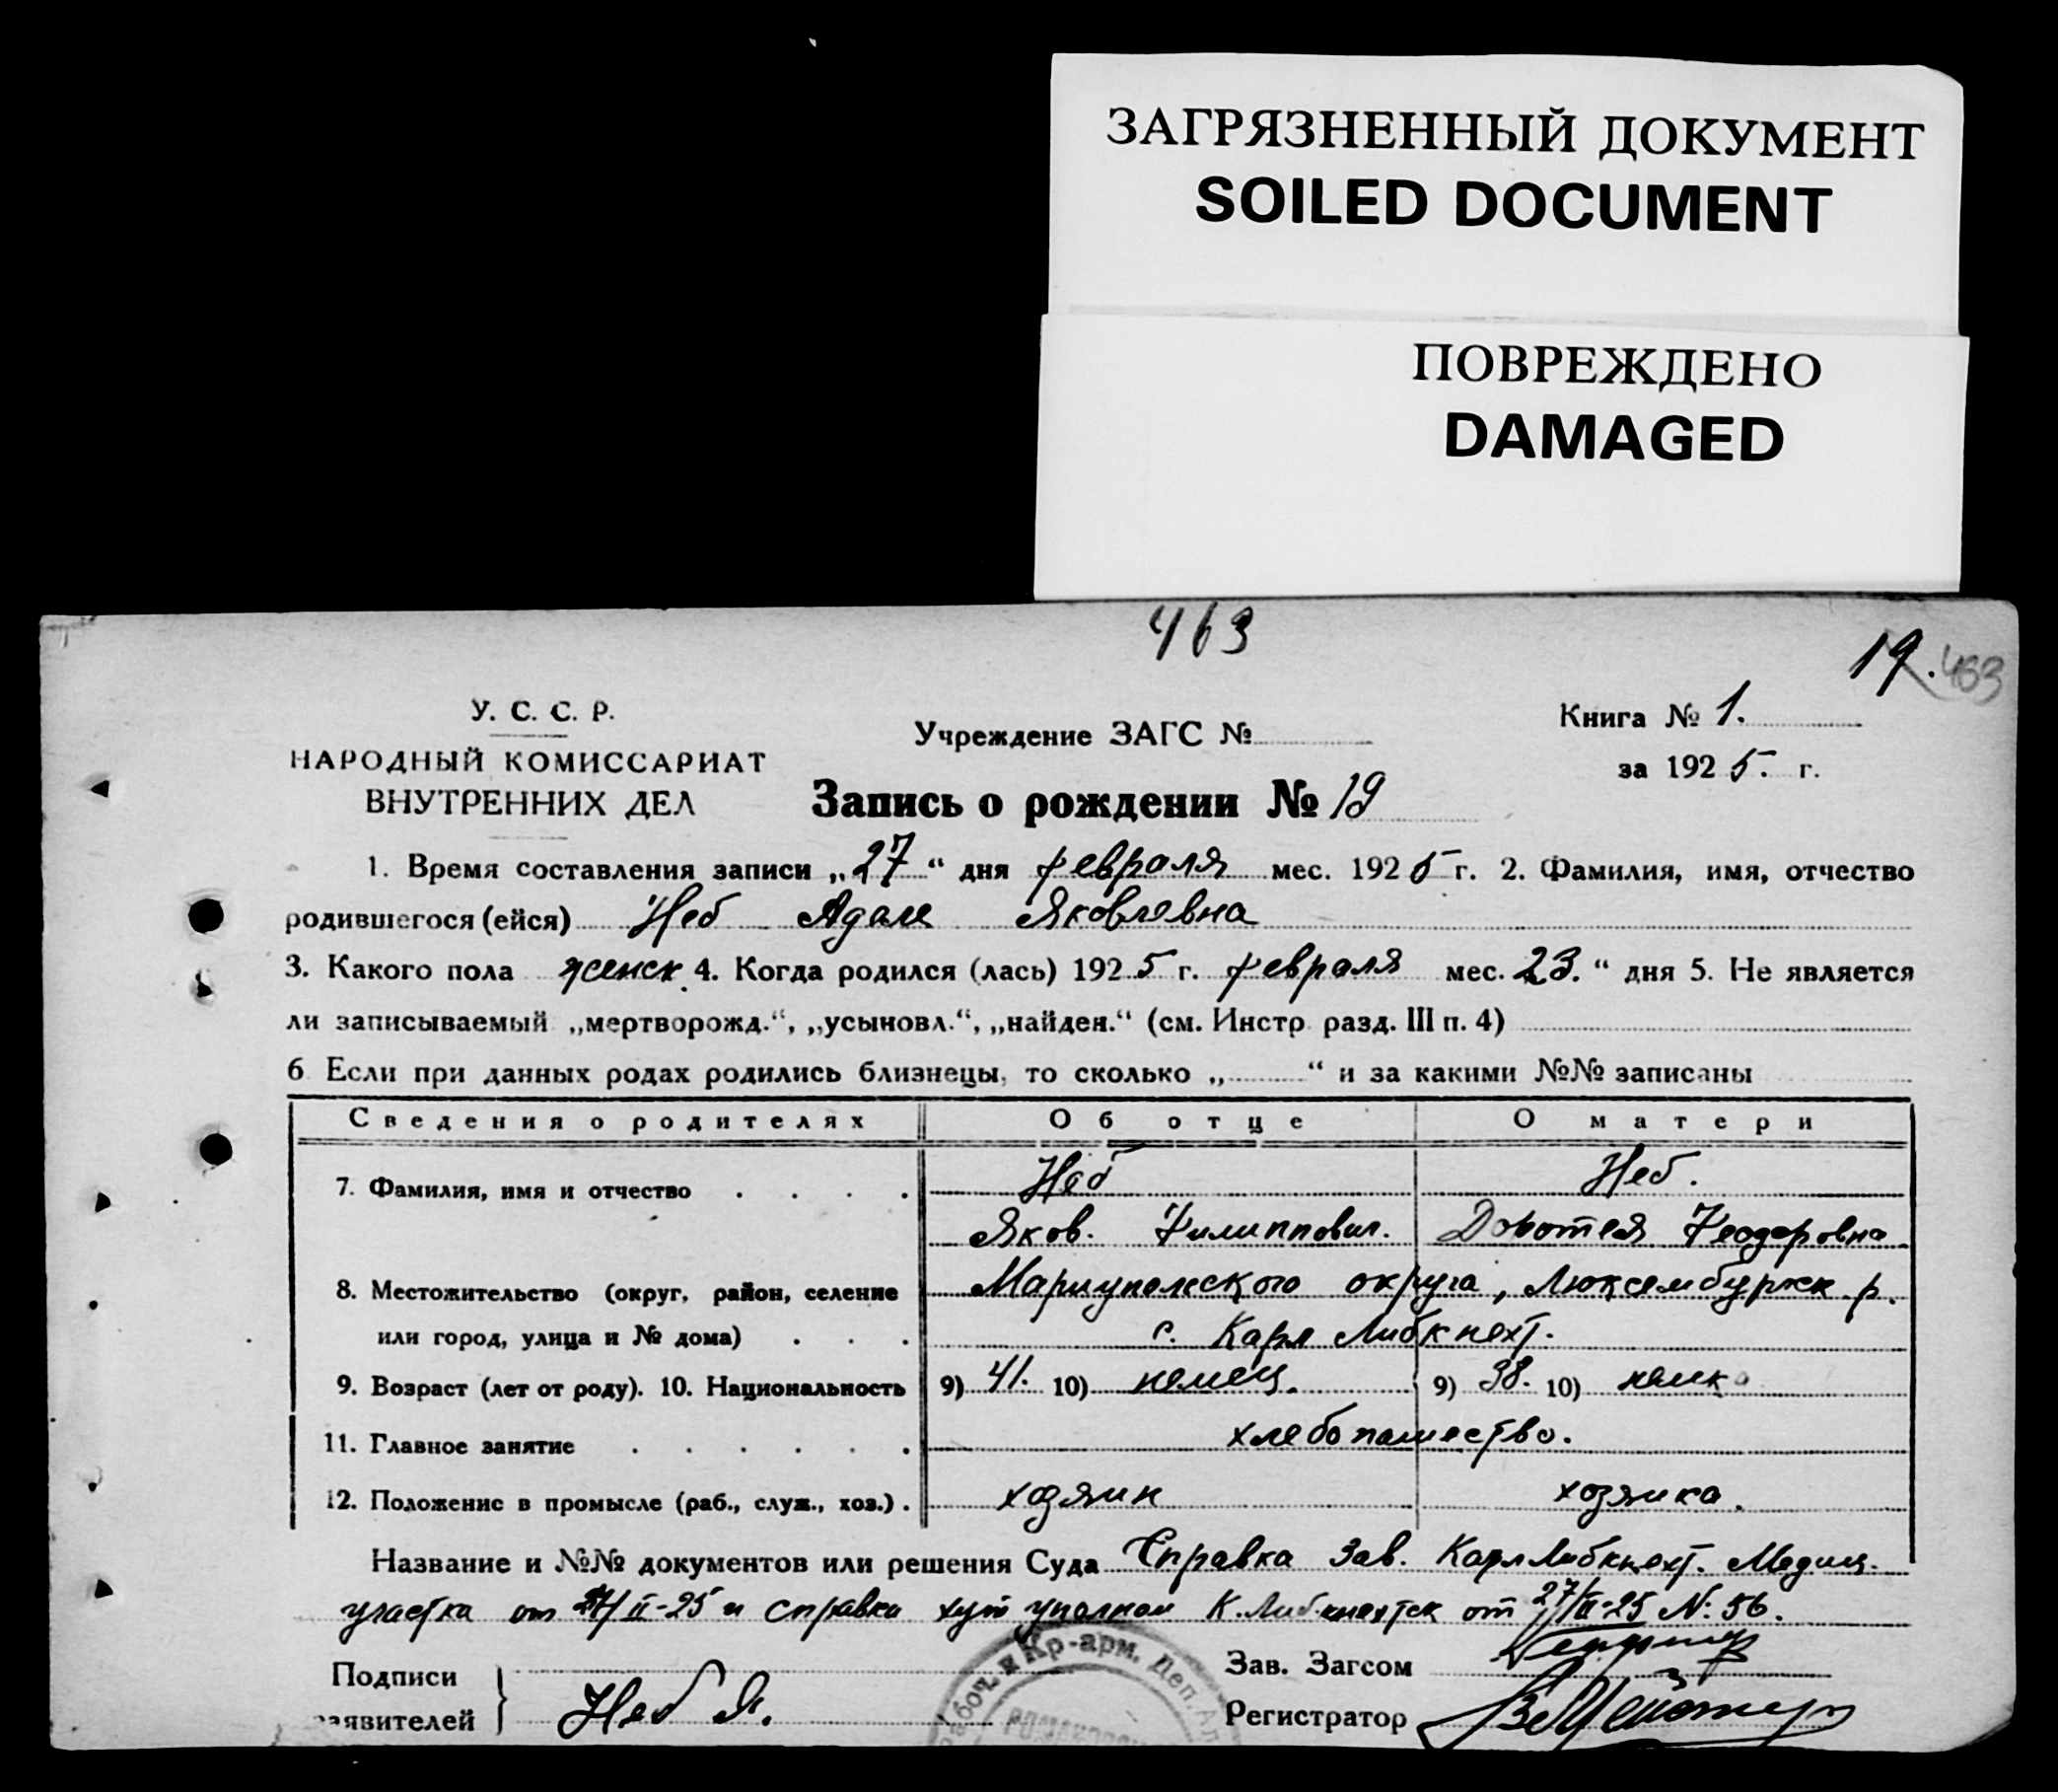 ЗАГРЯЗНЕННЫЙ ДОКУМЕНТ
SOILED DOCUMENT
ПОВРЕЖДЕНО
DAMAGED
463
19. 463
У. С. С. Р.
НАРОДНЫЙ КОМИССАРИАТ
ВНУТРЕННИХ ДЕЛ
Учреждение ЗАГС №
Книга № 1.
за 1925. г.
Запись о рождении № 19
1. Время составления записи „27“ дня февраля мес. 1925 г. 2. Фамилия, имя, отчество
родившегося (ейся) Неб Адале Яковлевна
3. Какого пола женск. 4. Когда родился (лась) 1925 г. февраля мес. 23. “ дня 5. Не является
ли записываемый „мертворожд.“, „усыновл.“, „найден.“ (см. Инстр. разд. III п. 4)
6 Если при данных родах родились близнецы, то сколько „ “ и за какими №№ записаны
Сведения о родителях Об отце О матери
7. Фамилия, имя и отчество Неб Неб.
Яков. Филиппович. Доротея Феодоровна
8. Местожительство (округ, район, селение Мариупольского округа, Люксембуржск. р.
или город, улица и № дома) с. Карл Либкнехт.
9. Возраст (лет от роду). 10. Национальность 9) 41. 10) немец. 9) 38. 10) немка
11. Главное занятие хлебопашество.
12. Положение в промысле (раб., служ., хоз.) хозяин хозяйка.
Название и №№ документов или решения Суда Справка Зав. Карл Либкнехт. Медиц.
участка от II-25 и справка хут К. Либкнехтск от 27/II-25 №. 56.
Подписи
заявителей Неб Я.
Рабоч. и Кр-арм. Деп.
Зав. Загсом
Регистратор